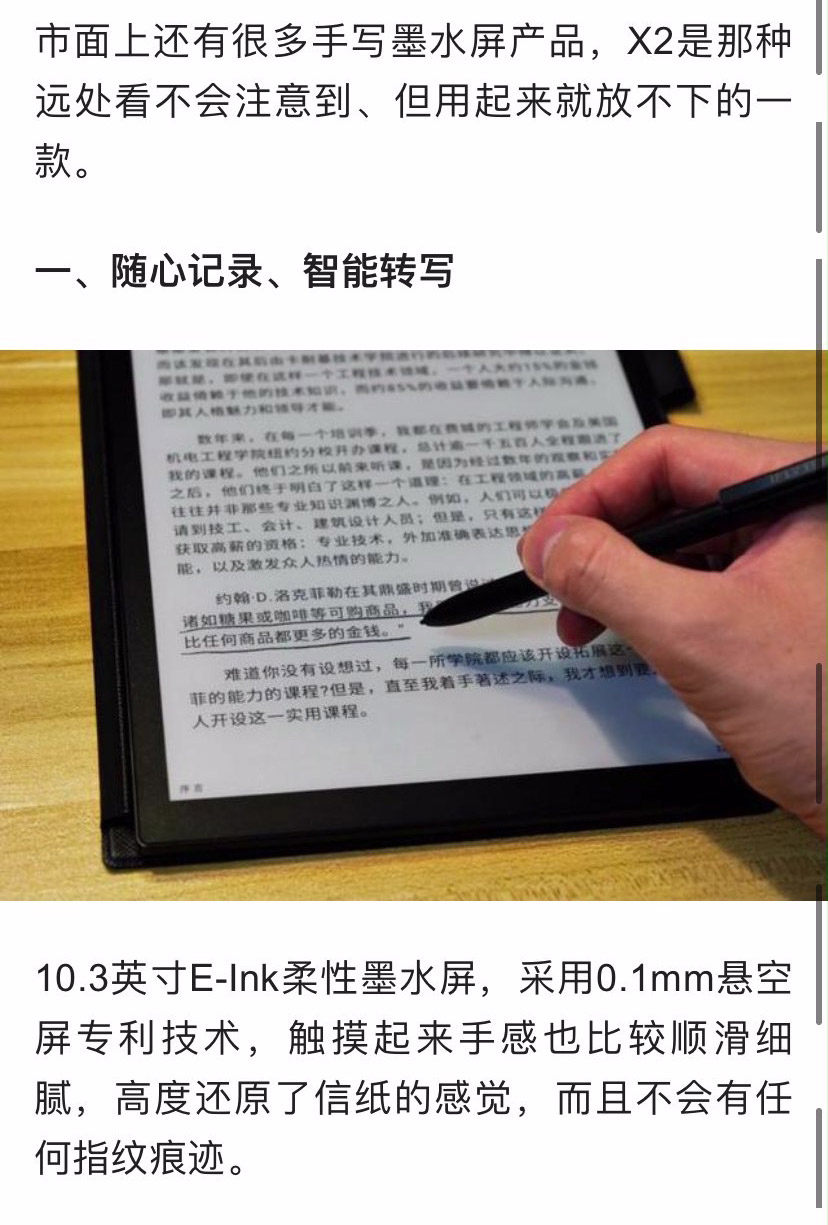 市面上还有很多手写墨水屏产品，X2是那种
远处看不会注意到、但用起来就放不下的一
款。
一、随心记录、智能转写
收益倚赖于他的技术知识，而约85%的收益要倚赖于人际沟通，
即其人格魅力和领导才能。
数年来，在每一个培训季，我都在费城的工程师学会及美国
机电工程学院纽约分校开办课程，总计逾一千五百人全程跟进了
我的课程。他们之所以前来听课，是因为经过数年的观察和实
之后，他们终于明白了这样一个道理：在工程领域的高薪
往往并非那些专业知识渊博之人。例如，人们可以
请到技工、会计、建筑设计人员；但是，只有这
获取高薪的资格：专业技术，外加准确表达思
能，以及激发众人热情的能力。
约翰·D.洛克菲勒在其鼎盛时期曾说
诸如糖果或咖啡等可购商品，我
比任何商品都更多的金钱。”
难道你没有设想过，每一所学院都应该开设拓展这
菲的能力的课程?但是，直至我着手著述之际，我才想到要
人开设这一实用课程。
序言
10.3英寸E-Ink柔性墨水屏，采用0.1mm悬空
屏专利技术，触摸起来手感也比较顺滑细
腻，高度还原了信纸的感觉，而且不会有任
何指纹痕迹。